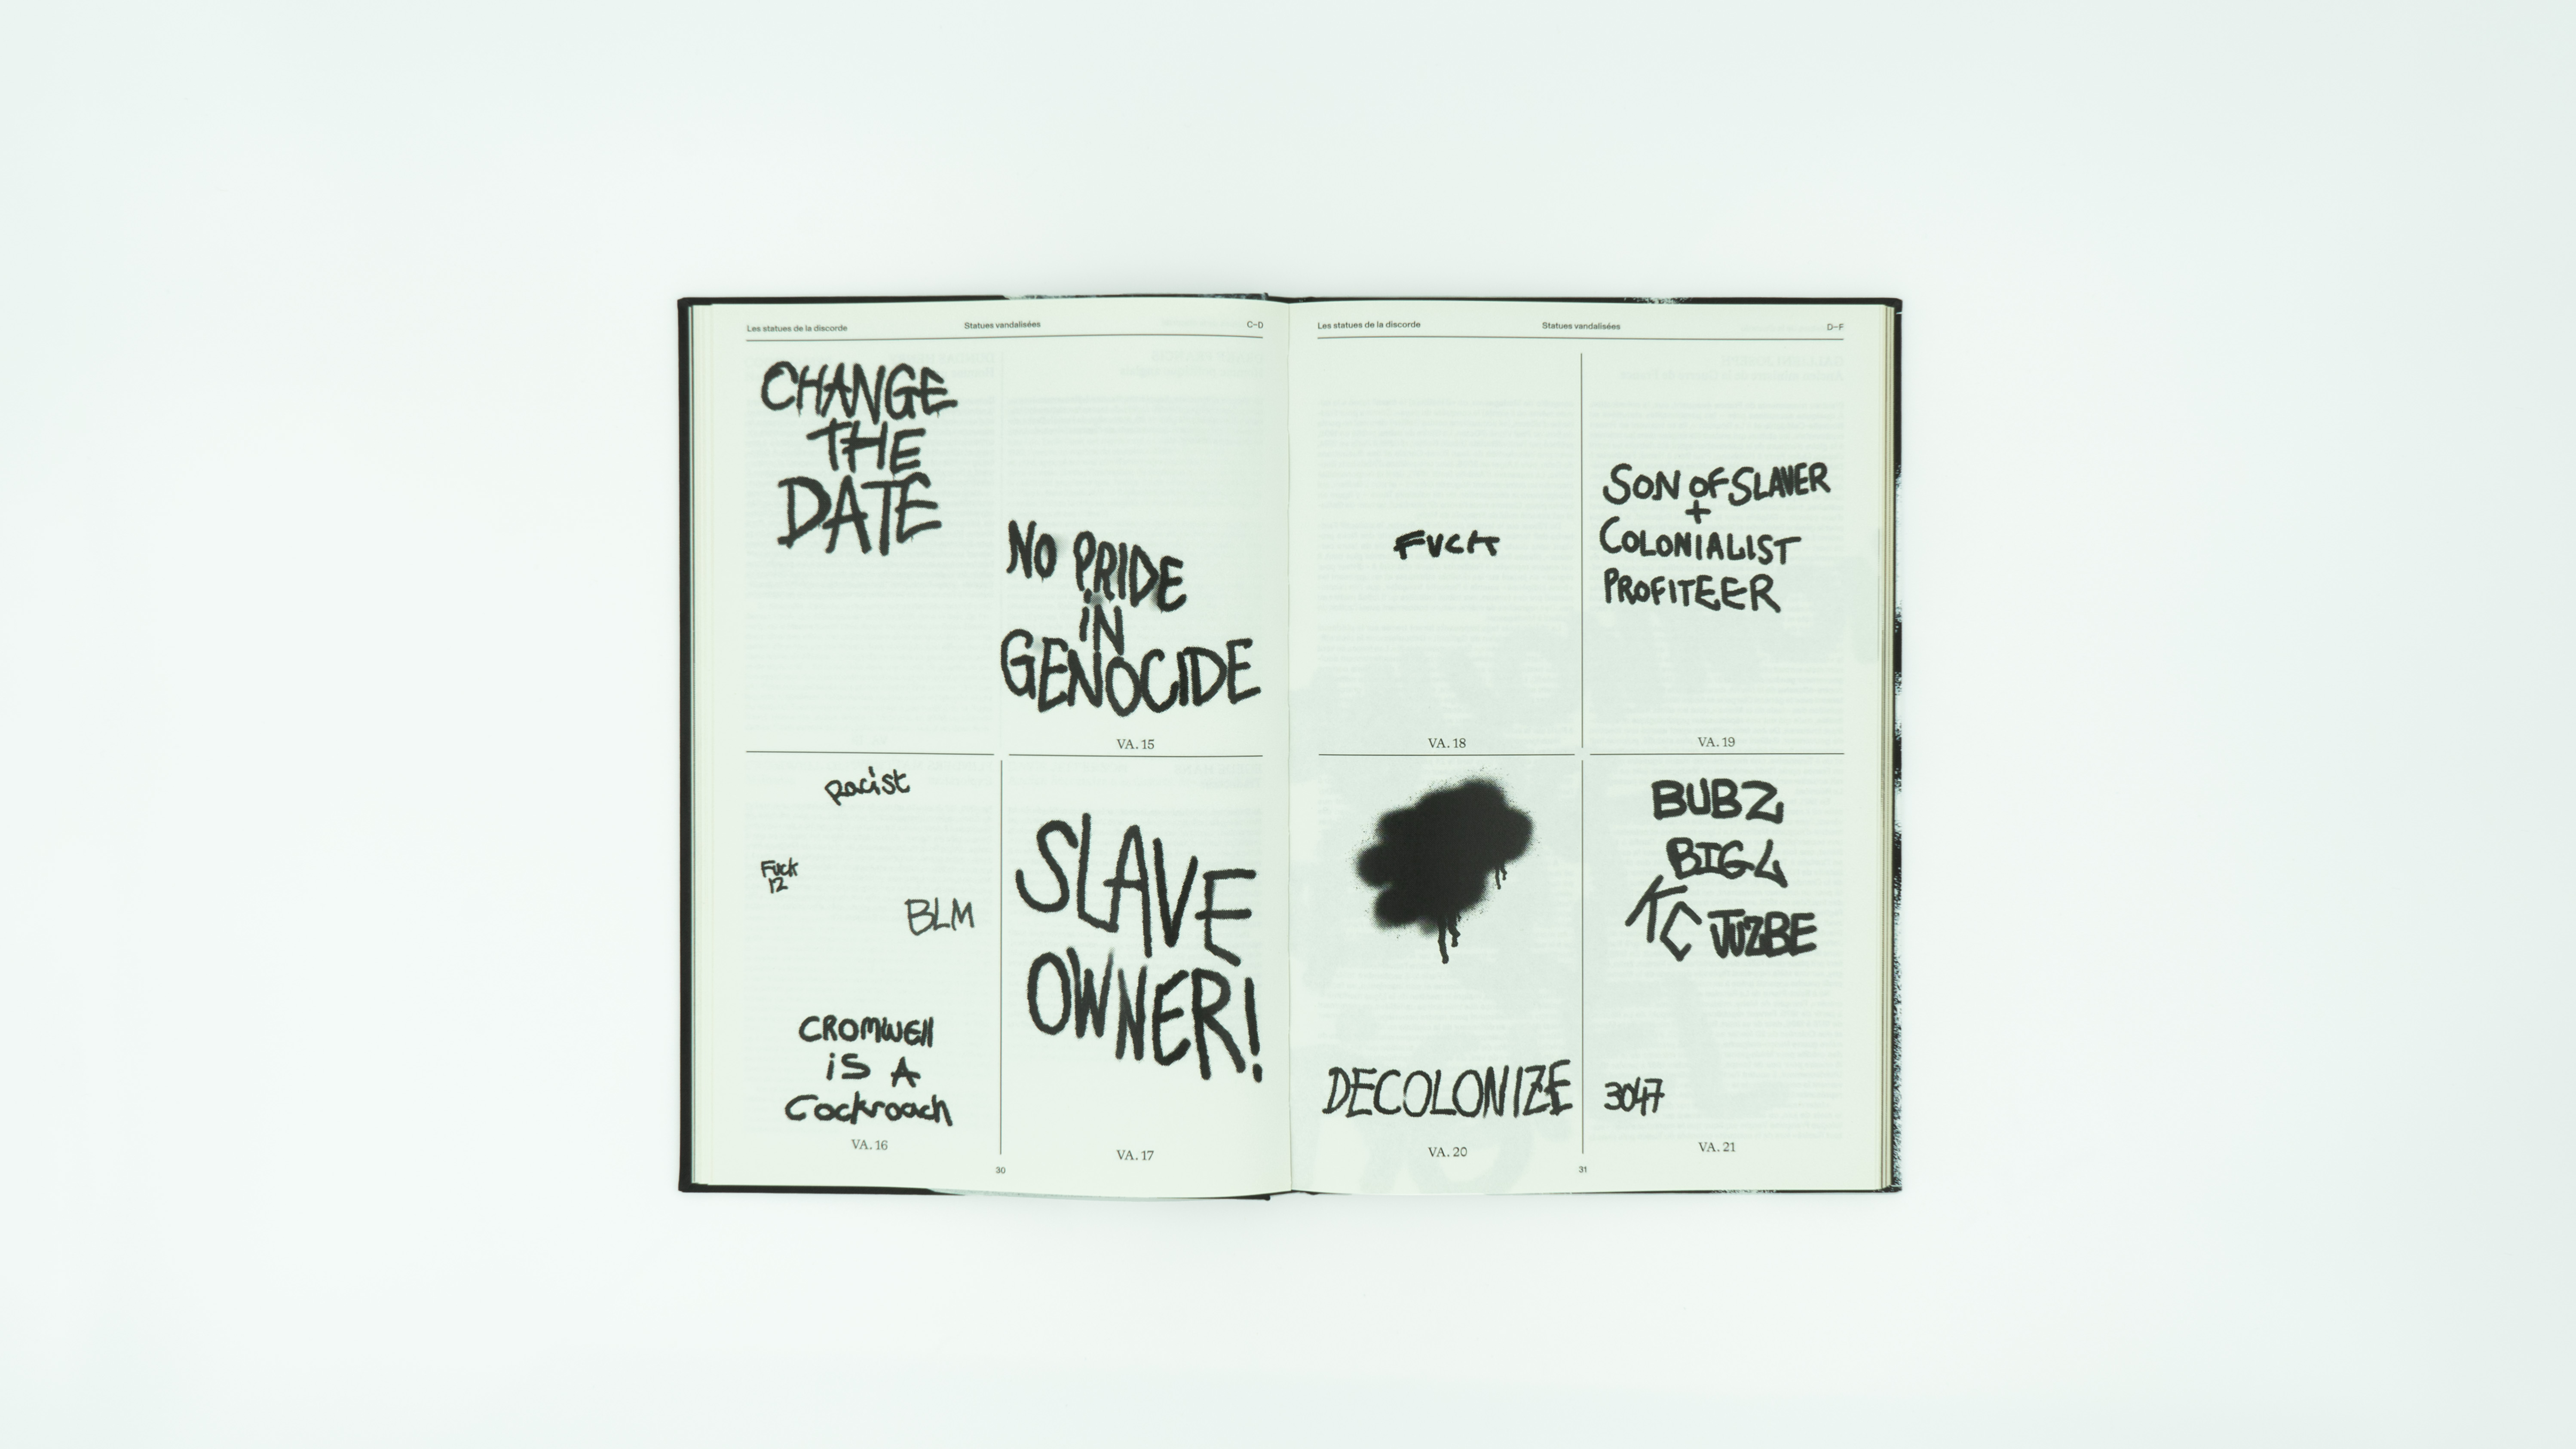 Les statues de la discorde
Statues vandalisées
C–D
CHANGE
THE
DATE
NO PRIDE
iN
GENOCIDE
VA. 15
Racist
Fuck
12
BLM
CROMWEll
iS A
Cockroach
VA. 16
SLAVE
OWNER!
VA. 17
30
Les statues de la discorde
Statues vandalisées
D–F
FUCK
VA. 18
SON OF SLAVER
+
COLONIALIST
PROFITEER
VA. 19
DECOLONIZE
VA. 20
BUBZ
BIG L
KC JUZBE
3047
VA. 21
31